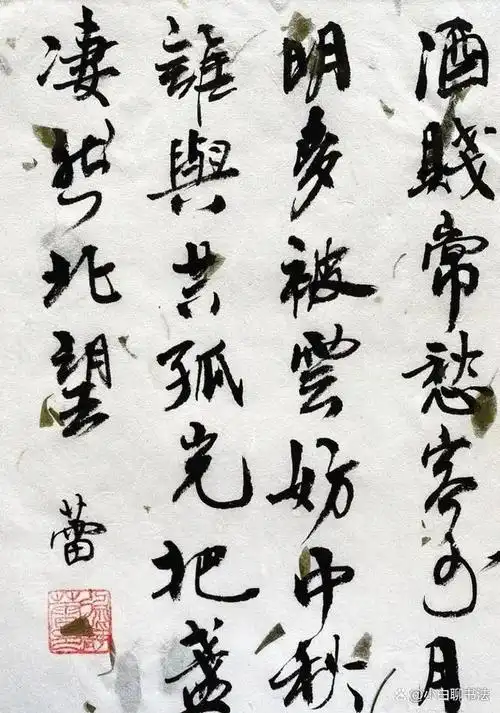 酒賤常愁客少月
明多被雲妨中秋
誰與共孤光把盞
凄然北望
蕾
@小白聊书法